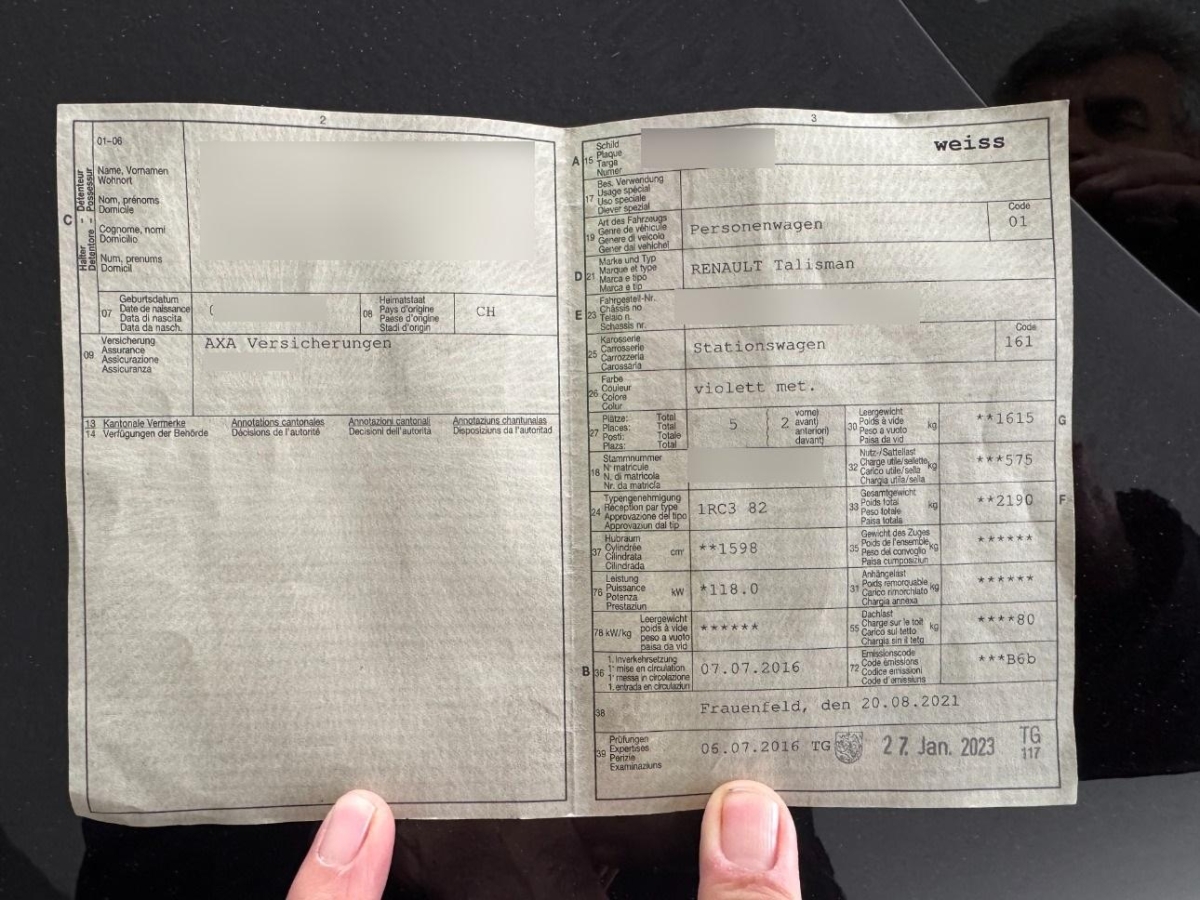 2
01-06
C
Halter - Détenteur
Detentore - Possessur
Name, Vornamen
Wohnort
Nom, prénoms
Domicile
Cognome, nomi
Domicilio
Num, prenums
Domicil
07
Geburtsdatum
Date de naissance
Data di nascita
Data da nasch.
08
Heimatstaat
Pays d'origine
Paese d'origine
Stadi d'origin
CH
09
Versicherung
Assurance
Assicurazione
Assicuranza
AXA Versicherungen
13 Kantonale Vermerke
14 Verfügungen der Behörde
Annotations cantonales
Décisions de l'autorité
Annotazioni cantonali
Decisioni dell'autorità
Annotaziuns chantunalas
Disposiziuns da l'autoritad
3
A 15
Schild
Plaque
Targa
Numer
weiss
17
Bes. Verwendung
Usage spécial
Uso speciale
Diever spezial
19
Art des Fahrzeugs
Genre de véhicule
Genere di veicolo
Gener dal vehichel
Personenwagen
Code
01
D 21
Marke und Typ
Marque et type
Marca e tipo
Marca e tip
RENAULT Talisman
E 23
Fahrgestell-Nr.
Châssis no
Telaio n.
Schassis nr.
25
Karosserie
Carrosserie
Carrozzeria
Carossaria
Stationswagen
Code
161
26
Farbe
Couleur
Colore
Colur
violett met.
27
Plätze: Total
Places: Total
Posti: Totale
Plazs: Total
5
2
vorne)
avant)
anteriori)
davant)
30
Leergewicht
Poids à vide
Peso a vuoto
Paisa da vid
kg
**1615
G
18
Stammnummer
N° matricule
N. di matricola
Nr. da matricla
32
Nutz-/Sattellast
Charge utile/sellette
Carico utile/sella
Chargia utila/sella
kg
***575
24
Typengenehmigung
Réception par type
Approvazione del tipo
Approvaziun dal tip
1RC3 82
33
Gesamtgewicht
Poids total
Peso totale
Paisa totala
kg
**2190
F
37
Hubraum
Cylindrée
Cilindrata
Cilindrada
cm³
**1598
35
Gewicht des Zuges
Poids de l'ensemble
Peso del convoglio
Paisa cumposiziun
kg
******
76
Leistung
Puissance
Potenza
Prestaziun
kW
*118.0
31
Anhängelast
Poids remorquable
Carico rimorchiato
Chargia annexa
kg
******
78 kW/kg
Leergewicht
poids à vide
peso a vuoto
paisa da vid
******
55
Dachlast
Charge sur le toit
Carico sul tetto
Chargia sin il tetg
kg
****80
B 36
1. Inverkehrsetzung
1ʳᵉ mise en circulation
1ª messa in circolazione
1. entrada en circulaziun
07.07.2016
72
Emissionscode
Code émissions
Codice emissioni
Code d'emissiuns
***B6b
38
Frauenfeld, den 20.08.2021
39
Prüfungen
Expertises
Perizie
Examinaziuns
06.07.2016 TG
27. Jan. 2023
TG
117